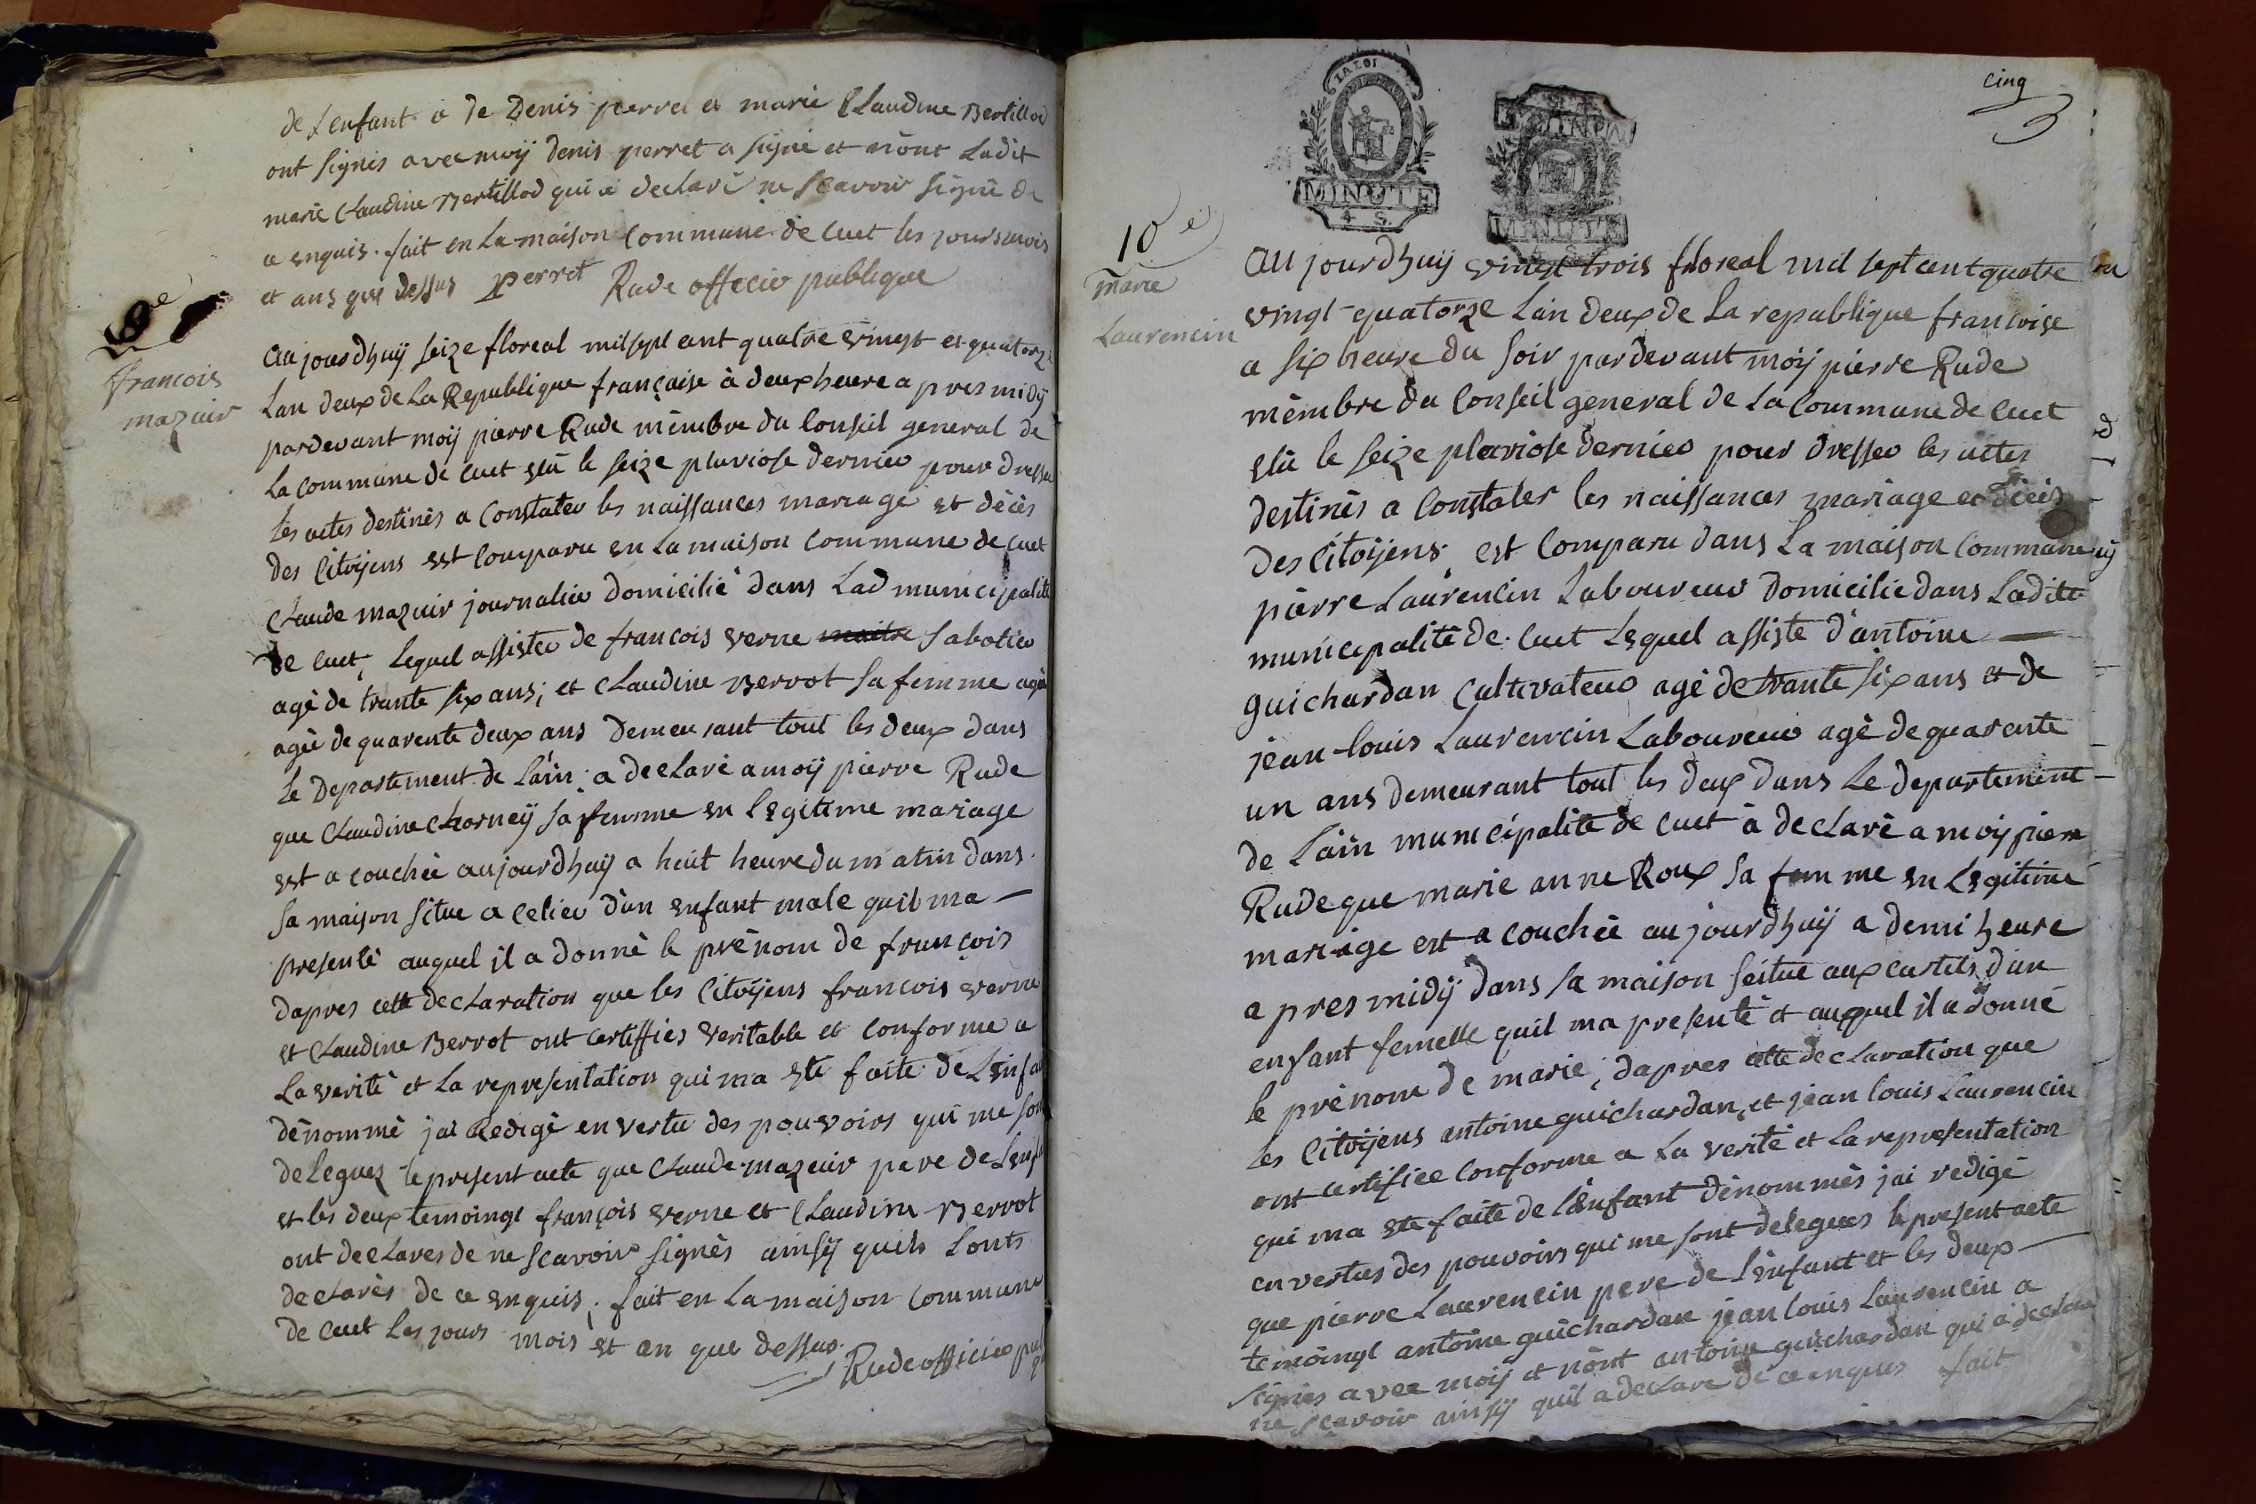 de Lenfant a de Denis perret et marie Claudine Bertillod
ont signés avec moÿ denis perret a signé et nont Ladit
marie Claudine Bertillod qui a declaré ne scavoir signé de
a enquis. fait en La maison Commune de Cuet les jours mois
et ans que dessus perret Rude officie publique
9e
francois
mazuir
au jourdhuÿ seize floreal mil sept cent quatre vingt et quatorze
Lan deux de La Republique française à deux heure a pres midÿ
pardevant moÿ pierre Rude mémbre du Conseil general de
La commune de Cuet elû le seize pluviose dernier pour dresser
les actes destinés a Constater les naissances mariage et décès
des Citoÿens est Comparu en La maison Commune de Cuet
Claude mazuir journalier domicilié dans Lad municipalité
de Cuet, Lequel assister de francois verne maitre sabotier
agé de trante six ans; et Claudine Berrot sa femme agée
agée de quarente deux ans Demeurant tout les deux dans
le Departement de Lain; a declaré a moÿ pierre Rude
que Claudine Charneÿ sa femme en legitime mariage
est a couchée aujourdhuÿ a huit heure du matin dans
sa maison situe a Celieu dun enfant male quil ma —
presenté auquel il a donné le prénom de francois
dapres cette declaration que les Citoÿens francois verne
et Claudine Berrot ont certiffies veritable et conforme a
La verité et La representation qui ma ete faite de Lenfant
dénommé jai Redigé en vertu des pouvoirs qui me sont
deleguez le present acte que Claude mazuir pere de Lenfant
et les deux temoingt françois verne et Claudine Berrot
ont declares de ne scavoir signés ainsÿ quils Lonts
declarés de ce enquis; fait en La maison Commune
de Cuet Les jours mois et an que dessus.
Rude officier
cinq
LA LOI
MINUTE
4 S.
MINUTE
10e
marie
Laurencin
au jourdhuÿ vingt trois floreal mil sept cent quatre
vingt-quatorze Lan deux de La republique francoise
a six heure du soir pardevant moÿ pierre Rude
mémbre du Conseil general de La Commune de Cuet
elû le seize pluviose dernier pour dresser les actes
destinés a Constater les naissances mariage et décès
des Citoÿens, est Comparu dans La maison Commune
pierre Laurencin Laboureur Domicilie dans Ladite
municipalité de Cuet Lequel assiste d'antoine —
guichardan Cultivateur agé de trante six ans et de
jean-louis Laurencin Laboureur agé de quarente
un ans demeurant tout les deux dans Le departement
de Lain municipalité de Cuet à declaré a moÿ pierre
Rude que marie anne Roux sa femme en Legitime
mariage est a couchée aujourdhuÿ a demi heure
a pres midÿ dans sa maison seitue aux castels dun
enfant femelle quil ma presenté et auquel il a donné
le prénom de marie; dapres cette declaration que
les Citoÿens antoine guichardan, et jean louis Laurencin
ont certifiee Conforme a La verité et La representation
qui ma ete faite de Lenfant dénommés jai redigé
en vertus des pouvoirs qui me sont delegues le present acte
que pierre Laurencin pere de l'enfant et les deux —
temoingt antoine guichardan jean louis Laurencin a
signés avec moÿ et nont antoine guichardan qui a declaré
ne scavoir ainsÿ quil a declare de ce enquis fait